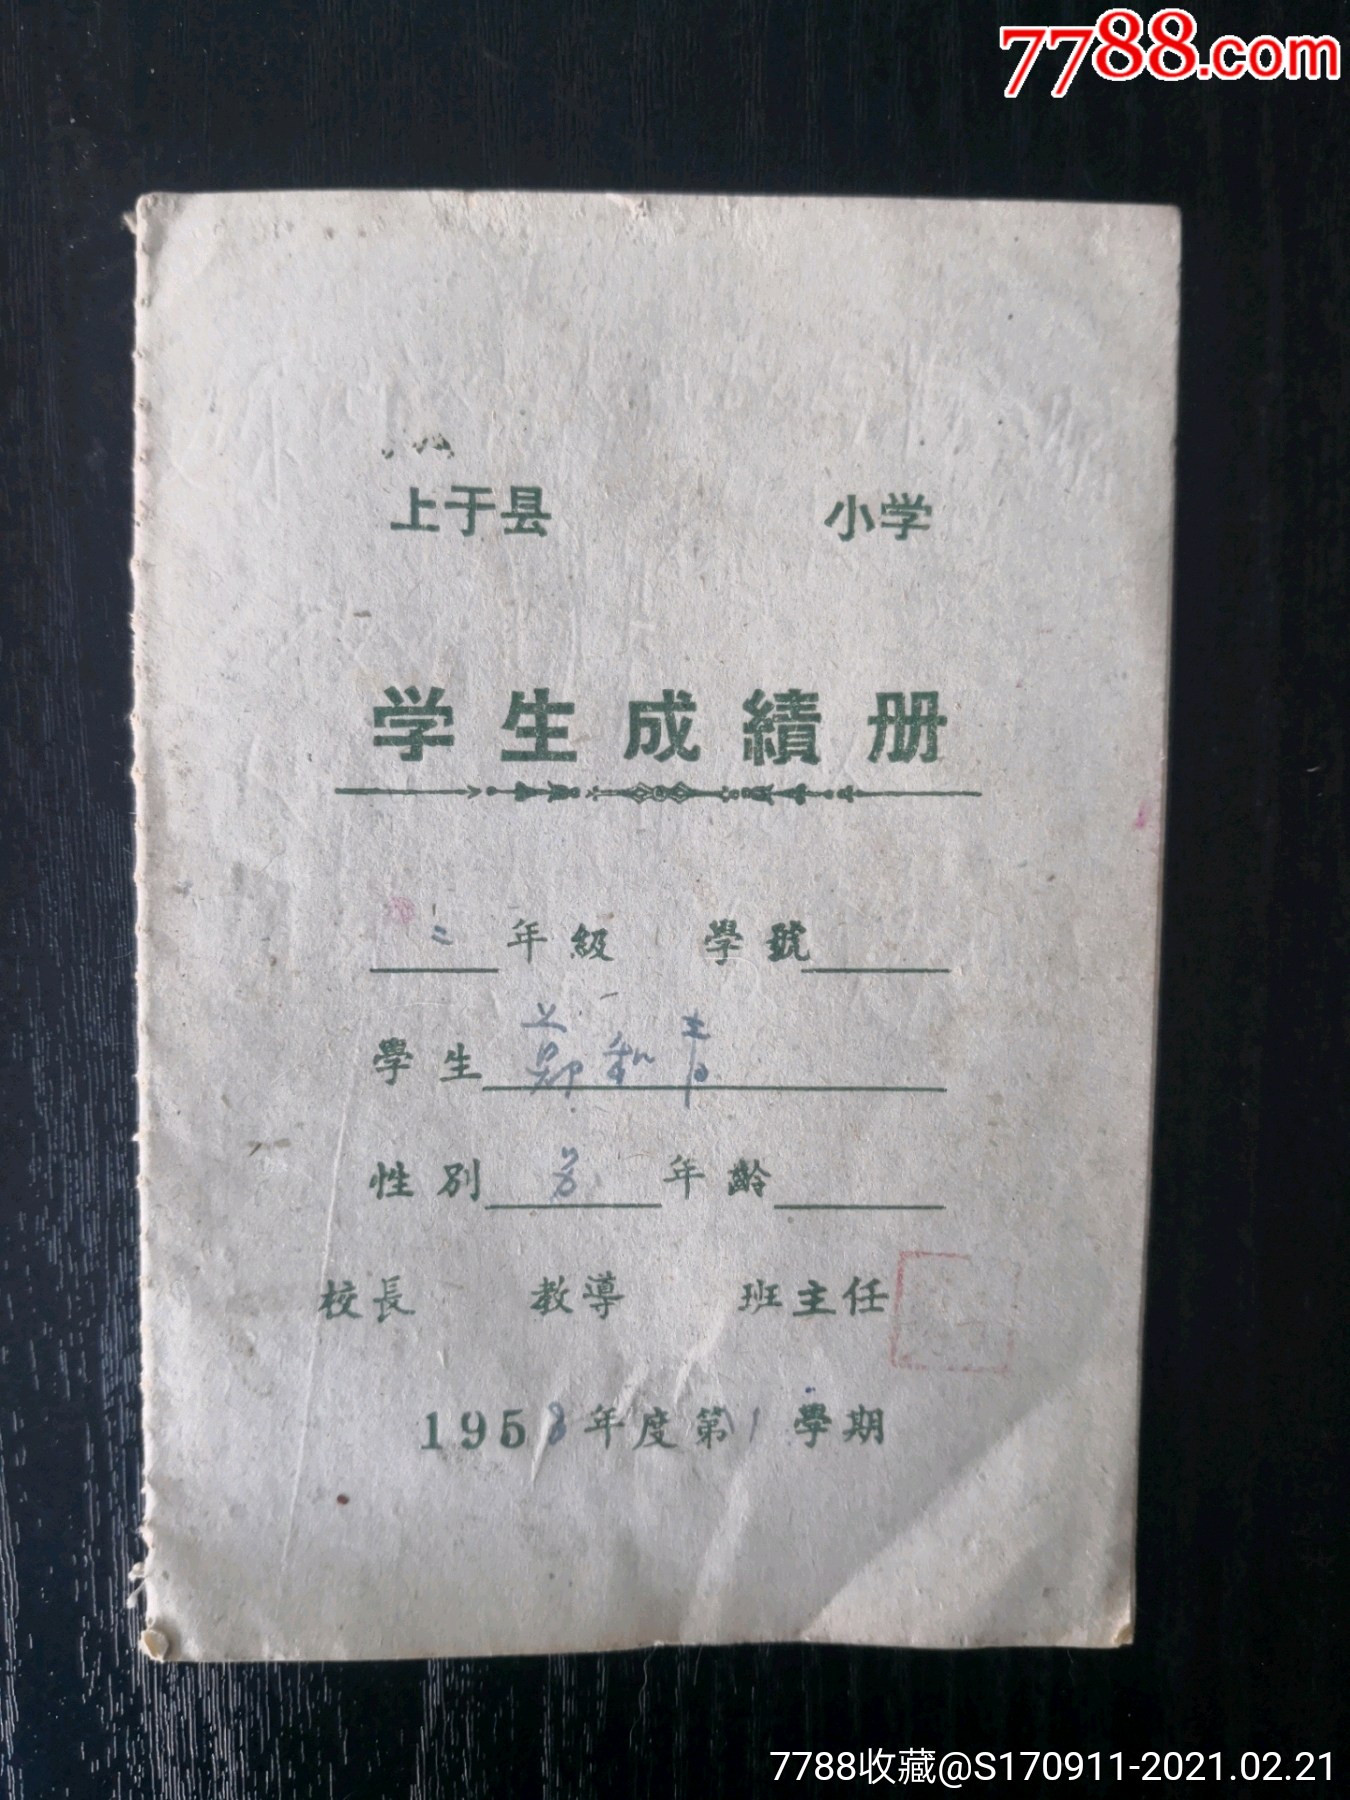 7788.com
上于县 小学
学生成績册
二年級 學號
學生 和青
性別 男 年齡
校長 教導 班主任
1958年度第1學期
7788收藏@S170911-2021.02.21